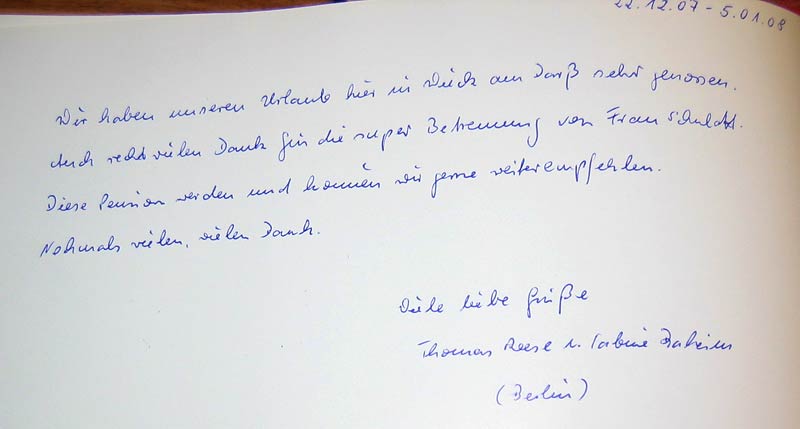 22.12.07 - 5.01.08
Wir haben unseren Urlaub hier in Wieck am Darß sehr genossen.
Auch recht vielen Dank für die super Betreuung von Frau
Diese Pension werden und können wir gerne weiterempfehlen.
Nochmals vielen, vielen Dank.
Viele liebe Grüße
Thomas Reese u. Sabine
(Berlin)